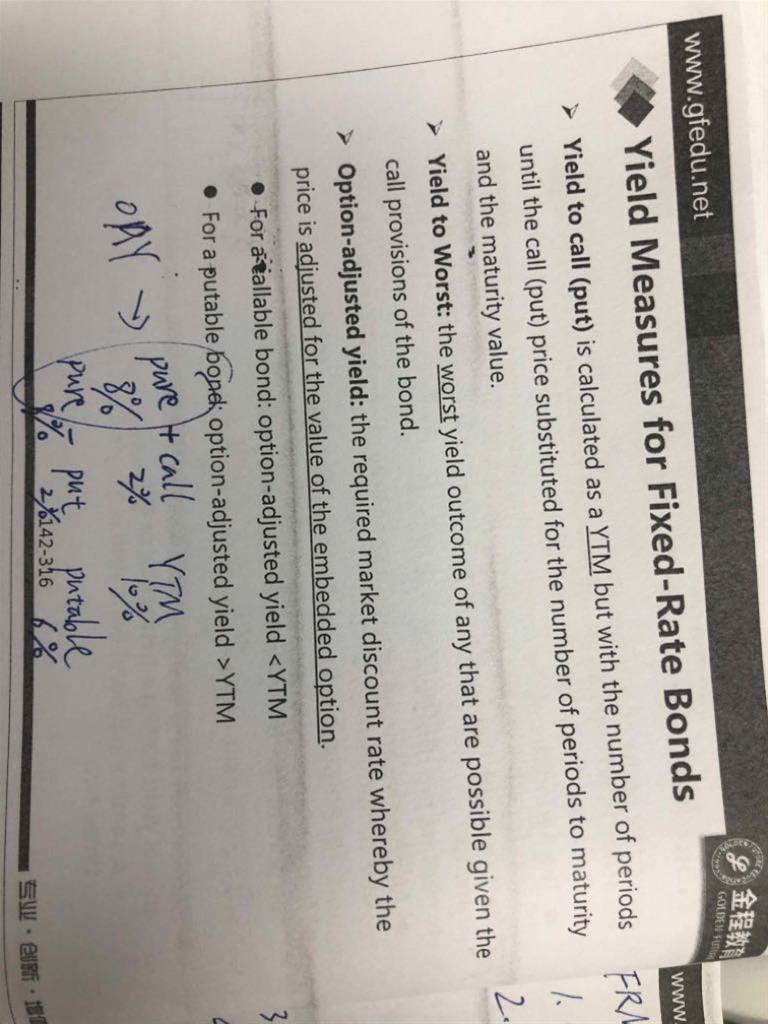 www.gfedu.net
金程教育
GOLDEN FUTURE
Yield Measures for Fixed-Rate Bonds
Yield to call (put) is calculated as a YTM but with the number of periods
until the call (put) price substituted for the number of periods to maturity
and the maturity value.
Yield to Worst: the worst yield outcome of any that are possible given the
call provisions of the bond.
Option-adjusted yield: the required market discount rate whereby the
price is adjusted for the value of the embedded option.
For a callable bond: option-adjusted yield <YTM
For a putable bond: option-adjusted yield >YTM
OAY → pure + call YTM
8% 2% 10%
pure - put putable
8% 2% 6%
142-316
专业 · 创新 · 增值
www
FRN
1.
2.
3